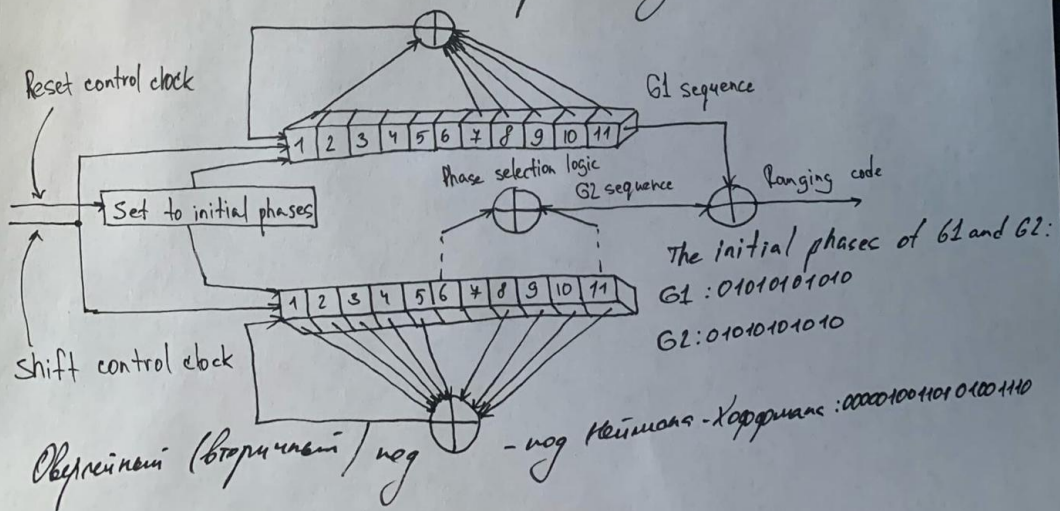 Reset control clock
G1 sequence
1 2 3 4 5 6 7 8 9 10 11
Phase selection logic
G2 sequence
Ranging code
Set to initial phases
The initial phases of G1 and G2:
G1:01010101010
G2:01010101010
1 2 3 4 5 6 7 8 9 10 11
Shift control clock
Оверлейный (вторичный) код - код Неймана-Хоффмана:00000100110101001110